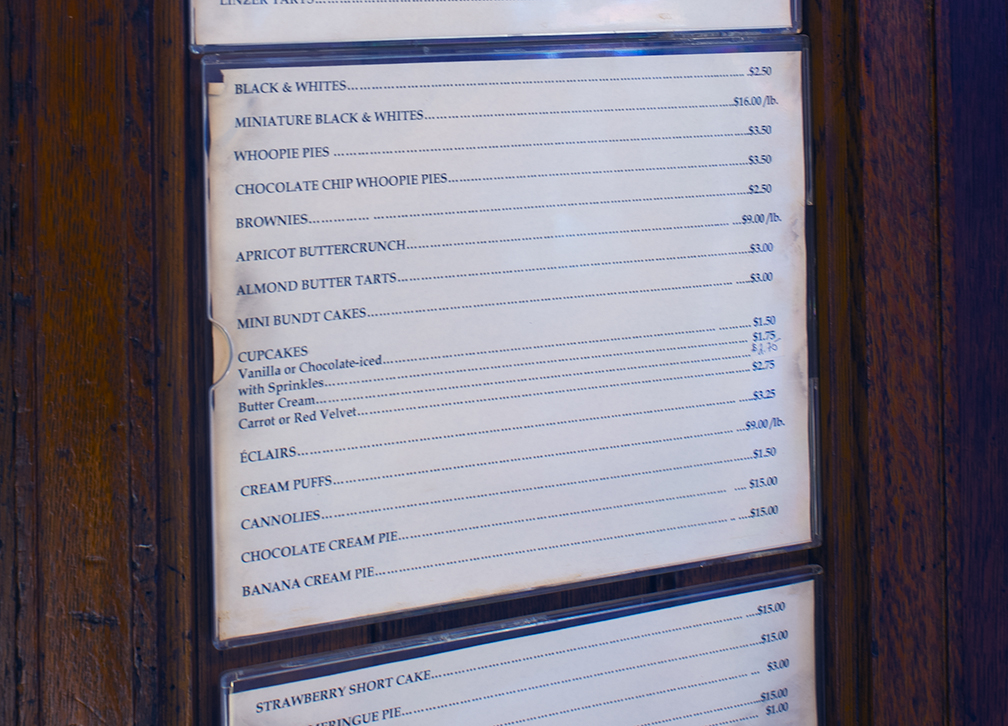 LINZER TARTS..............................
BLACK & WHITES.............................. $2.50
MINIATURE BLACK & WHITES..............................$16.00/lb.
WHOOPIE PIES ..............................$3.50
CHOCOLATE CHIP WHOOPIE PIES..............................$3.50
BROWNIES..............................$2.50
APRICOT BUTTERCRUNCH..............................$9.00/lb.
ALMOND BUTTER TARTS..............................$3.00
MINI BUNDT CAKES..............................$3.00
CUPCAKES
Vanilla or Chocolate-iced..............................$1.50
with Sprinkles..............................$1.75
Butter Cream..............................
Carrot or Red Velvet..............................$2.75
ÉCLAIRS..............................$3.25
CREAM PUFFS..............................$9.00/lb.
CANNOLIES..............................$1.50
CHOCOLATE CREAM PIE..............................$15.00
BANANA CREAM PIE..............................$15.00
STRAWBERRY SHORT CAKE..............................$15.00
MERINGUE PIE..............................$15.00
$3.00
$15.00
$1.00